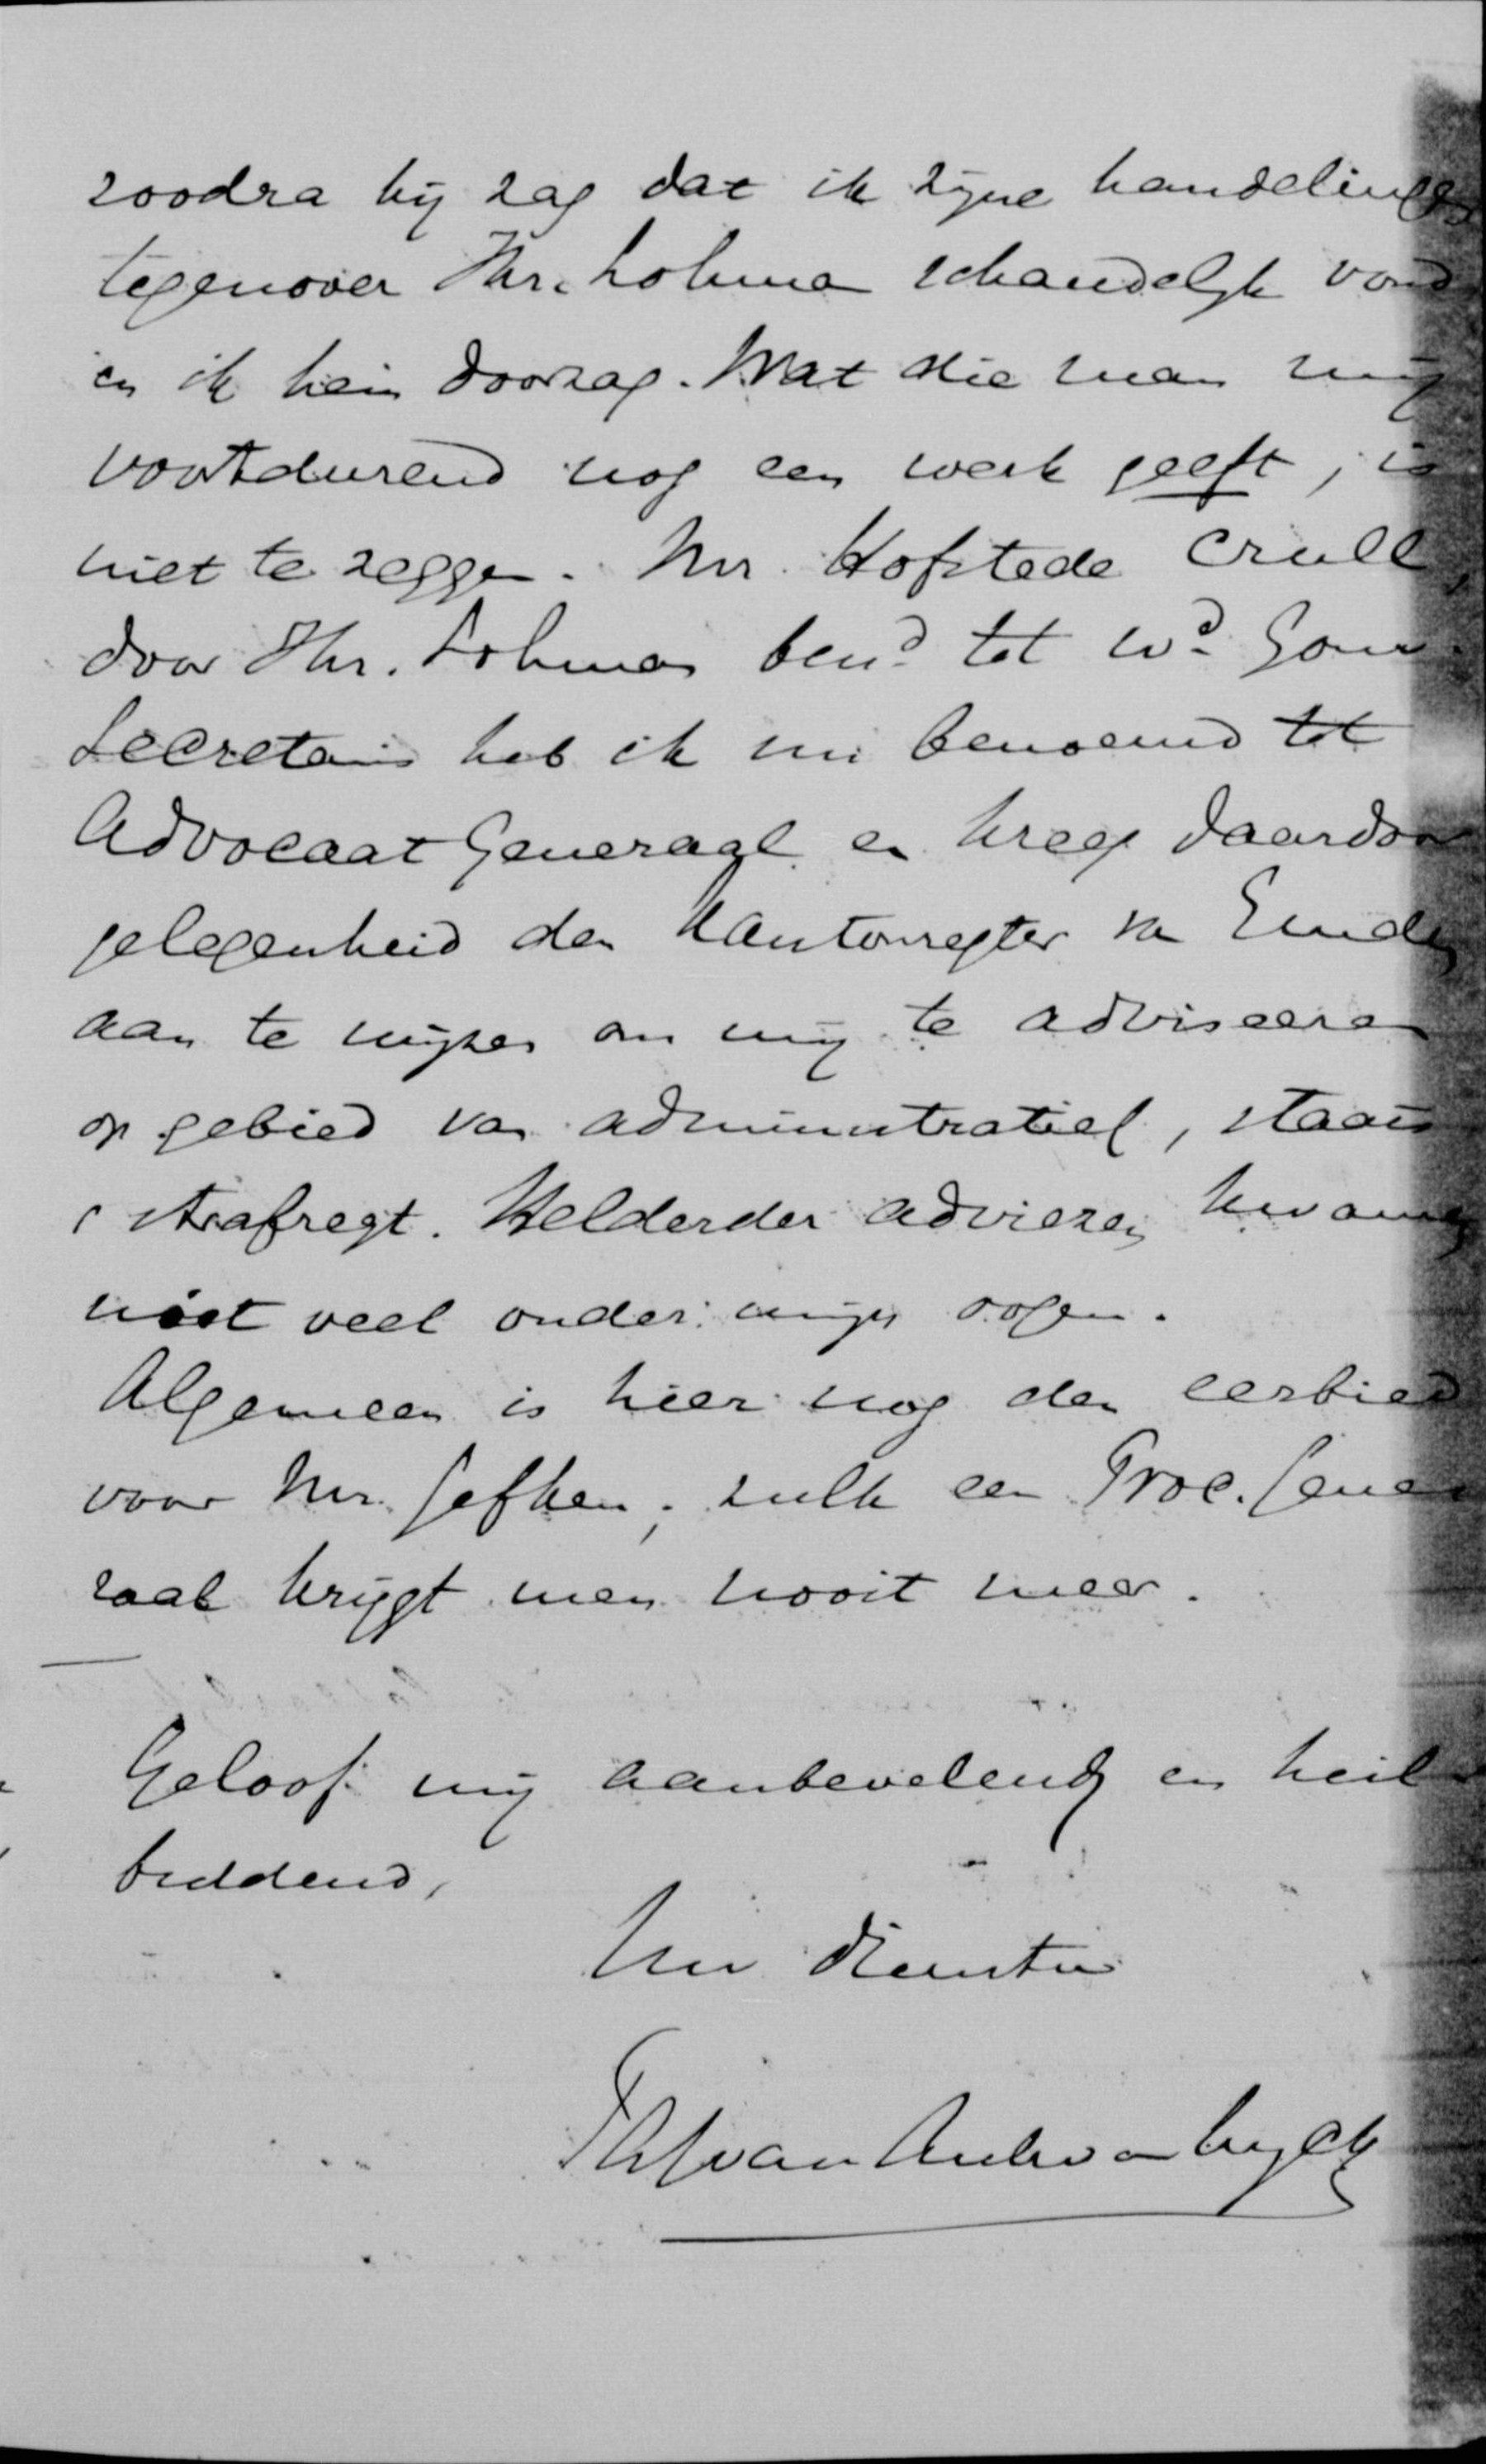 zoodra hij zag dat ik zijne handelingen
tegenover Jhr. Lohman schandelijk vond
en ik hem doorzag. Wat die man mij
voortdurend nog een werk geeft, is
niet te zeggen. Mr. Hofstede Crull,
door Jhr. Lohman ben.d tot w.d Gouv.
Secretaris heb ik nu benoemd tot
Advocaat Generaal en kreeg daardoor
gelegenheid den Kantonregter
aan te wijzen om mij te adviseeren
op gebied van administratief, staats
strafregt. Helderder adviezen kwamen
niet veel onder mijn oogen.
Algemeen is hier nog den eerbied
voor Mr. Gefken; zulk een Proc. Gene
raal krijgt men nooit meer.
Geloof mij aanbevelend en heil
biddend,
Uw
van Asch van Wyck